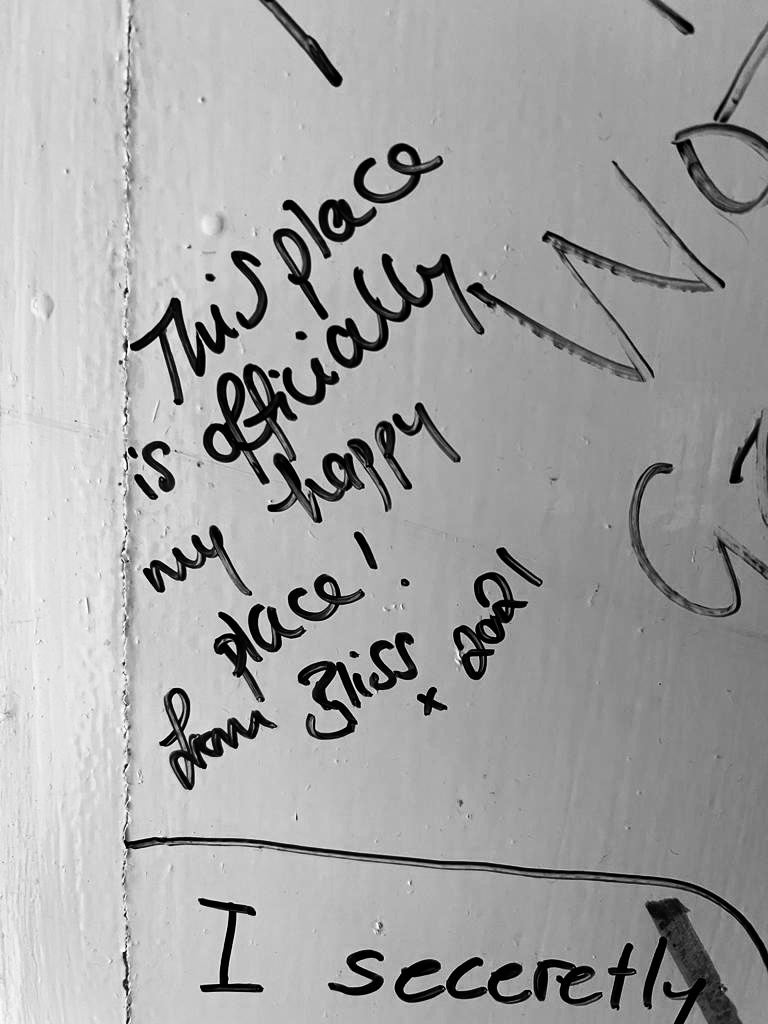 This place
is officially
my happy
place!
from Bliss x 2021
I seceretly